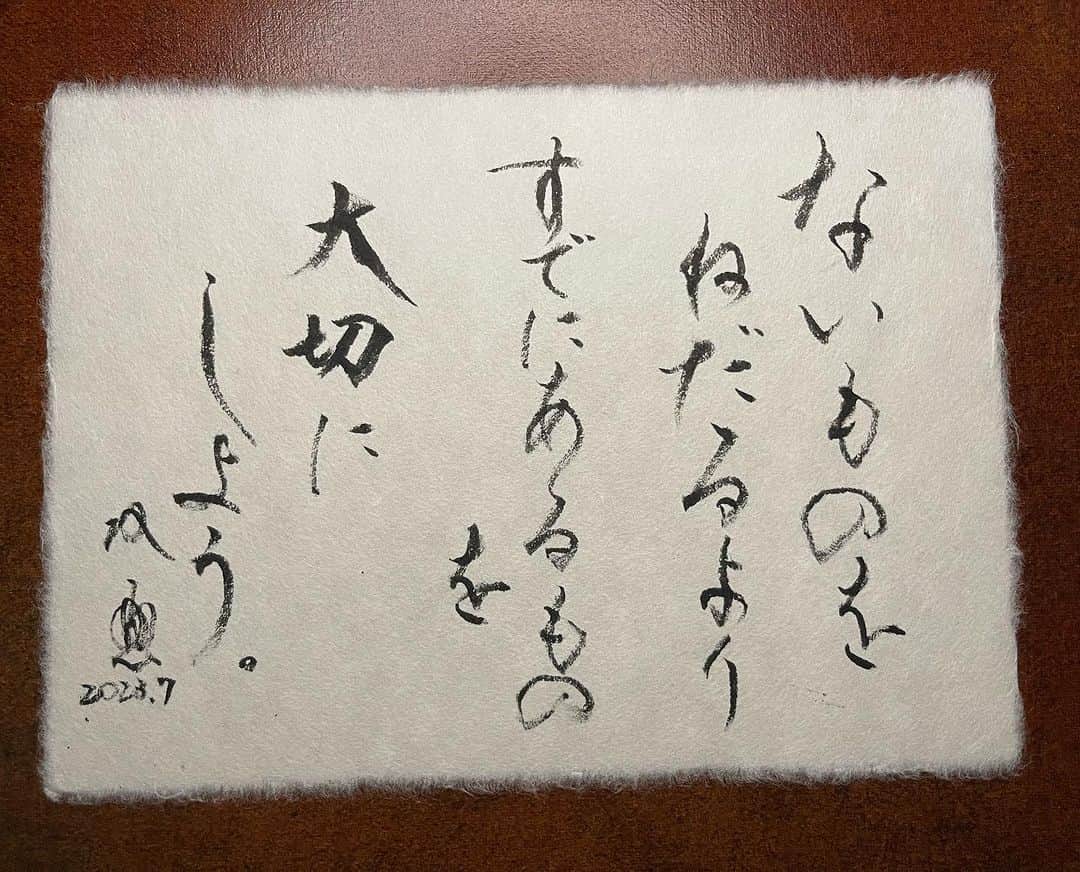 ないものを
ねだるより
すでにあるもの
を
大切に
しよう。
2023.7